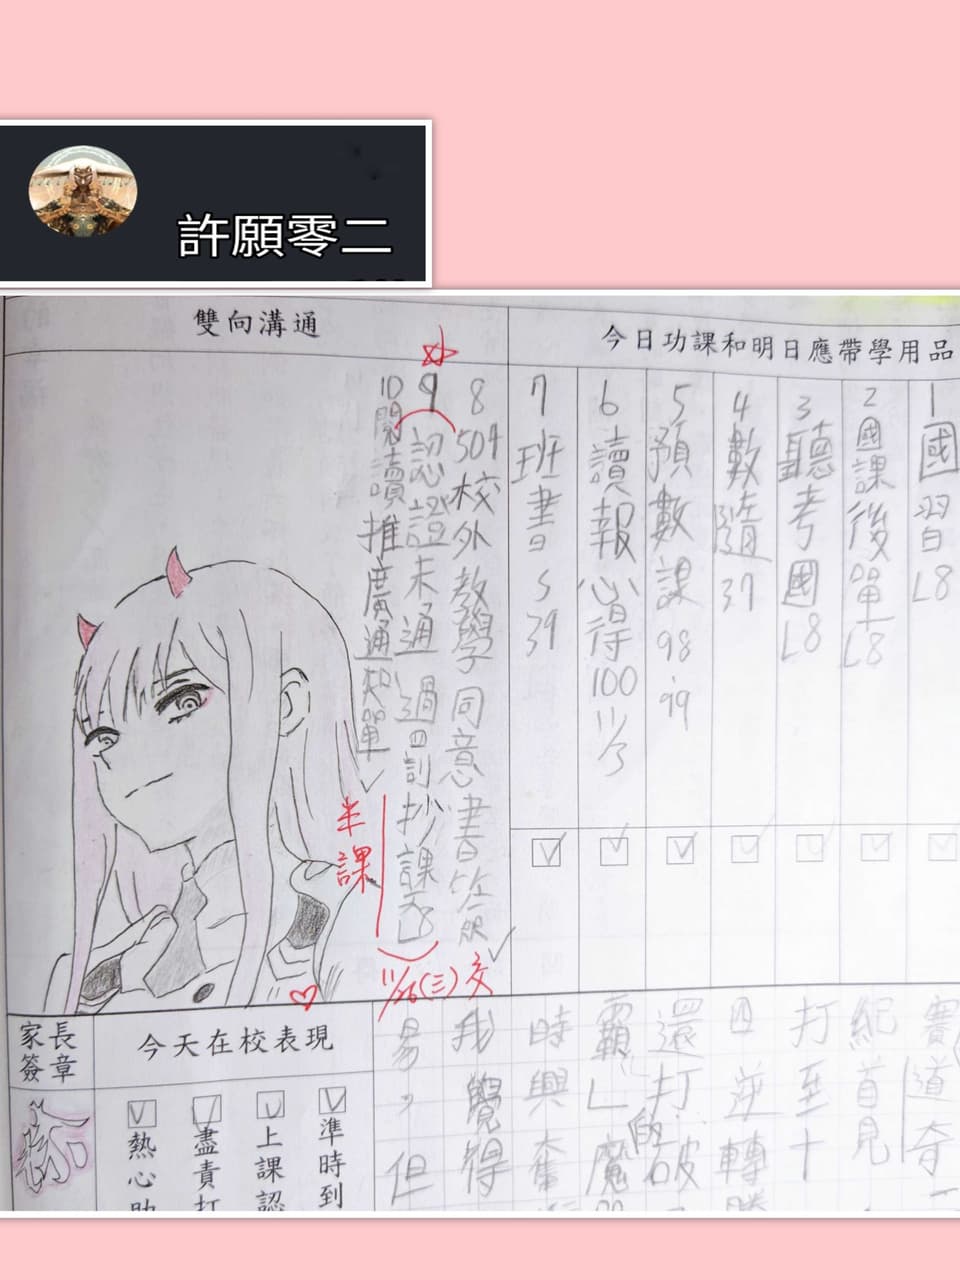 許願零二
今日功課和明日應帶學用品
1國習L8
2國課後單L8
3聽考國L8
4數隨37
5預數課98.99
6讀報心得100 11/3
7班書S39
雙向溝通
8 504校外教學同意書簽
9認證未通過四割抄課
10閱讀推廣通知單
半課
11/26(三)交
家長簽章
今天在校表現
準時到
上課認
盡責打
熱心助
賽道夺一
紀首見
打至十
四逆轉勝
還打破
霸」魔的
時興奮
我覺得
易,但